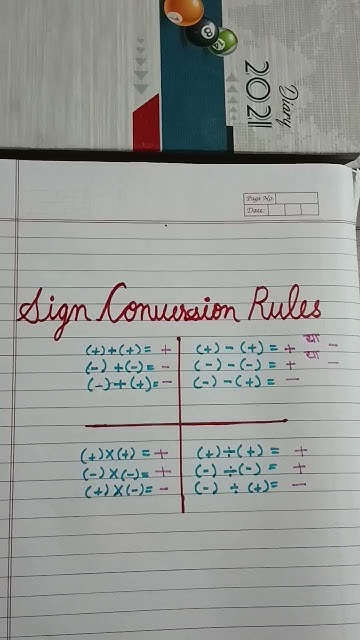 Diary
2021
Page No.
Date:
Sign Conversion Rules
(+)+(+)= +
(-) +(-)= -
(-)+(+)= -
(+) - (+) = + या -
(-) - (-) = + या -
(-) - (+) = -
(+)×(+) = +
(-)×(-)= +
(+)×(-)= -
(+)÷(+) = +
(-) ÷(-) = +
(-) ÷ (+)= -
1
8